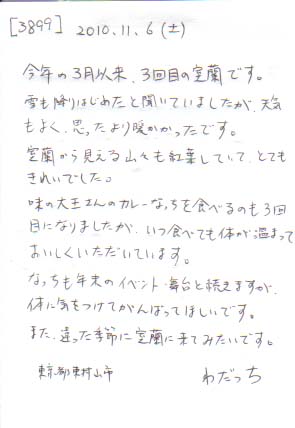 [3899] 2010.11.6 (土)
今年の3月以来、3回目の室蘭です。
雪も降りはじめたと聞いていましたが、天気
もよく、思ったより暖かかったです。
室蘭から見える山々も紅葉していて、とても
きれいでした。
味の大王さんのカレーなっちを食べるのも3回
目になりましたが、いつ食べても体が温まって
おいしくいただいています。
なっちも年末のイベント・舞台と続きますが、
体に気をつけてがんばってほしいです。
また、違った季節に室蘭に来てみたいです。
東京都東村山市 わだっち